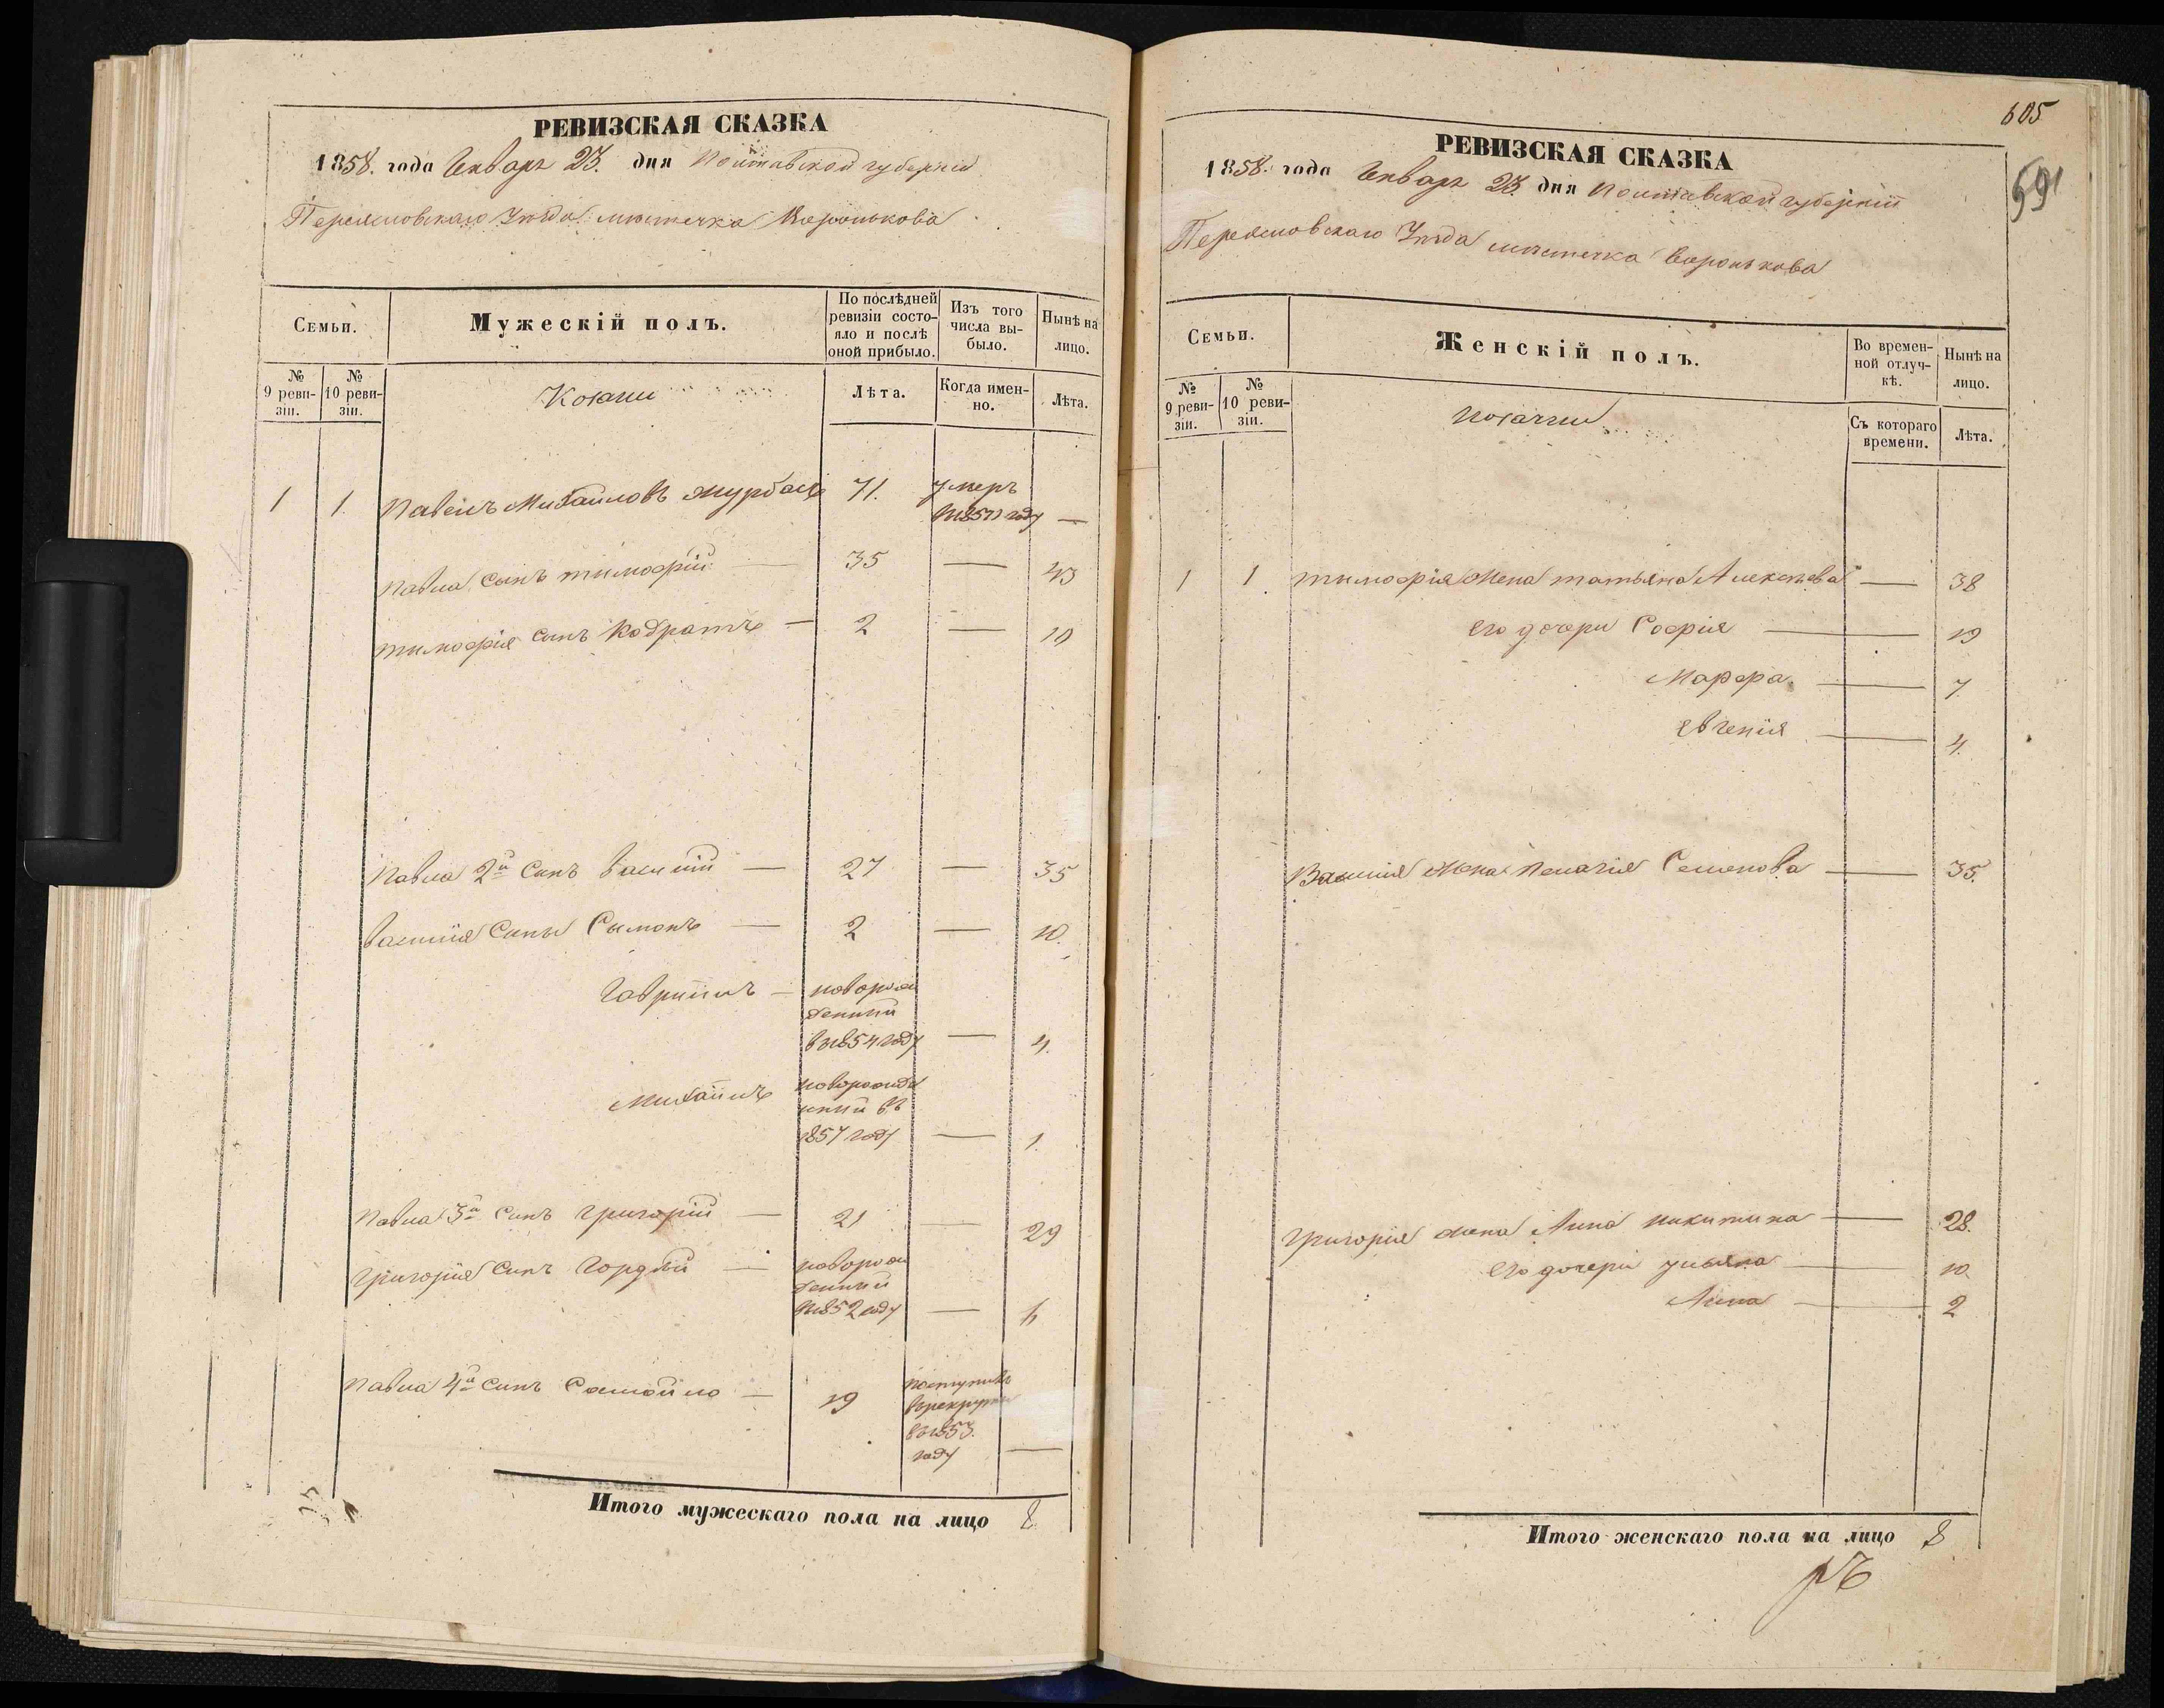 РЕВИЗСКАЯ СКАЗКА
1858. года Генваря 23. дня Полтавской губерніи
Переясловскаго Уѣзда мѣстечка Воронькова
Семьи.
Мужескій полъ.
По послѣдней ревизіи состояло и послѣ оной прибыло.
Изъ того числа выбыло.
Нынѣ на лицо.
№ 9 ревизіи.
№ 10 ревизіи.
Козаки
Лѣта.
Когда именно.
Лѣта.
1 1. Павелъ Михайловъ 71. умеръ —
Павла сынъ тимофій — 35 — 43
тимофія сынъ Кодратъ — 2 — 10
Павла 2й сынъ василій — 27 — 35
василія сыны Сымонъ — 2 — 10.
Гаврііилъ — новорож
денный
въ 1854 году — 4.
Михаіилъ новорожде
нный въ
1857 году — 1.
Павла 3й сынъ григорій — 21 — 29
григорія сынъ Гордѣй — новорож
денный
въ 1852 году — 6
Павла 4й сынъ Самойло — 19 поступилъ
въ рекруты
въ 1853.
году —
Итого мужескаго пола на лицо 8.
605
591
РЕВИЗСКАЯ СКАЗКА
1858. года Генваря 23. дня Полтавской губерніи
Переясловскаго Уѣзда мѣстечка Воронькова
Семьи.
Женскій полъ.
Во временной отлучкѣ.
Нынѣ на лицо.
№ 9 ревизіи.
№ 10 ревизіи.
Козачки
Съ котораго времени.
Лѣта.
1 1 тимофія жена татьяна Алексѣева — 38
его дочери Софія — 19
Марфа — 7
евгенія — 4.
Василія жена Пелагія Семенова — 35.
григорія жена Анна никитина — 28.
его дочери ульяна — 10.
Анна — 2
Итого женскаго пола на лицо 8